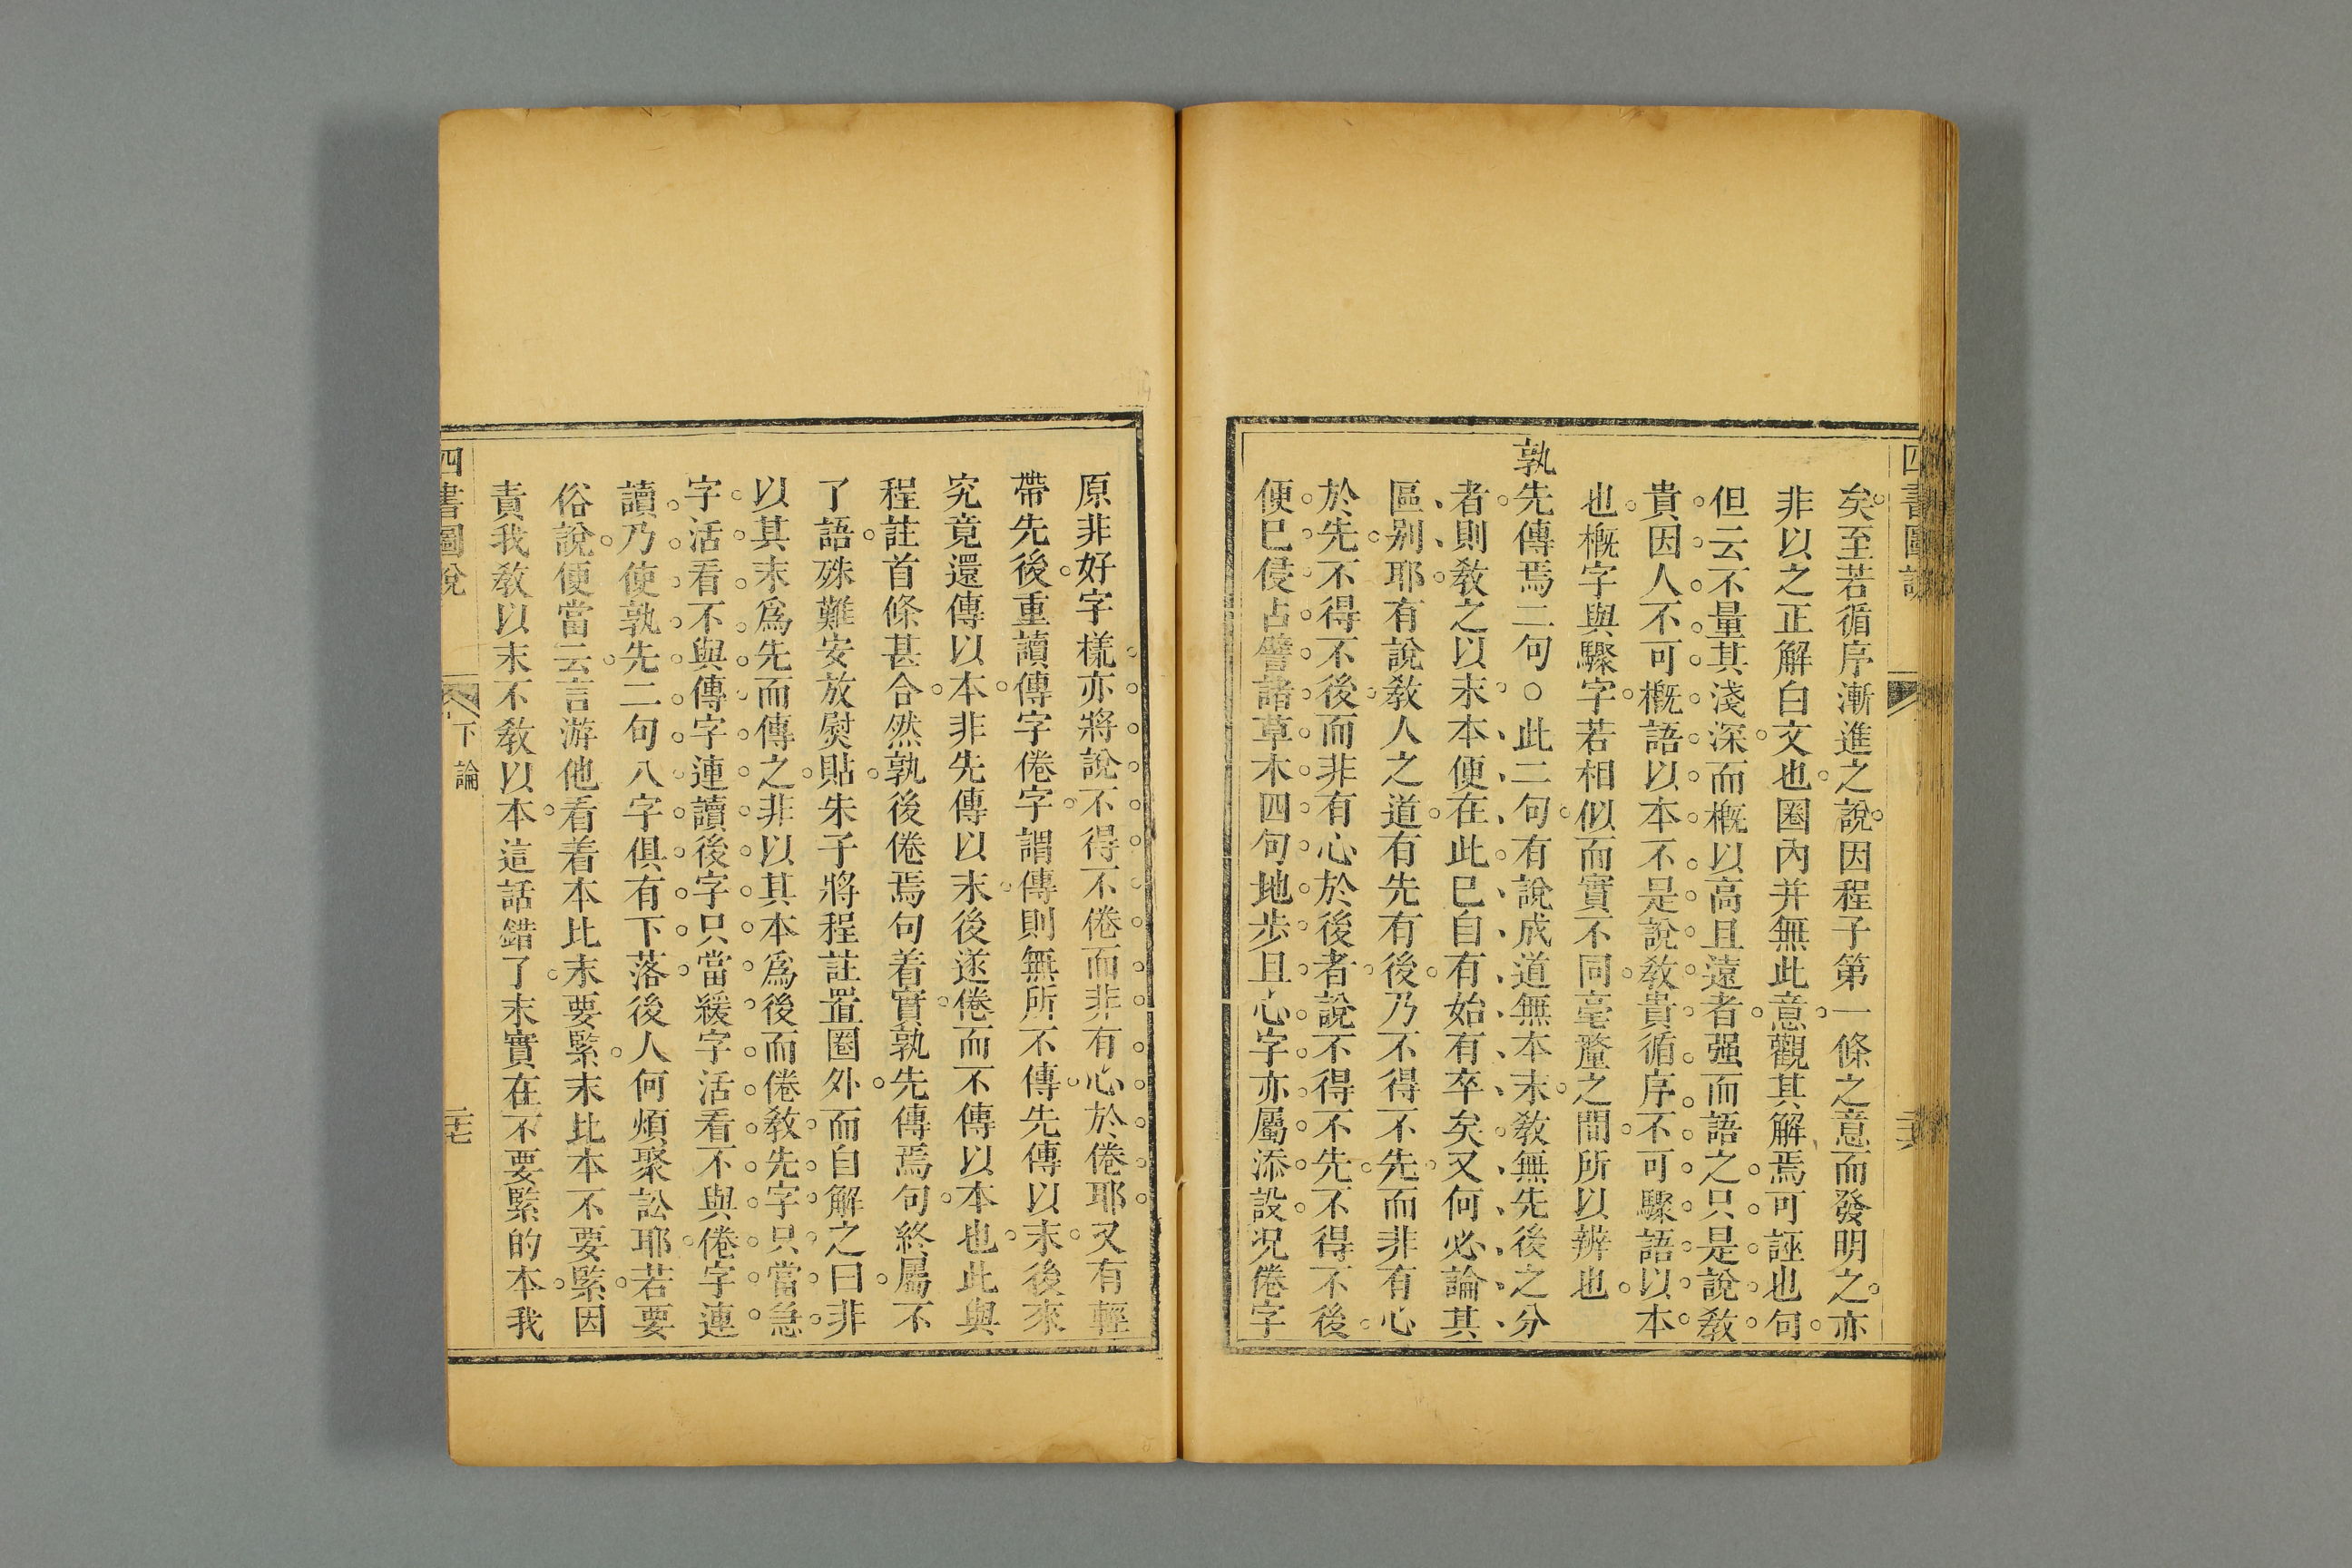 四書圖說
三六
矣至若循序漸進之說因程子第一條之意而發明之亦
非以之正解白文也圈內并無此意觀其解焉可誣也句
但云不量其淺深而槪以高且遠者强而語之只是說敎
貴因人不可槪語以本不是說敎貴循序不可驟語以本
也槪字與驟字若相似而實不同毫釐之間所以辨也
孰先傳焉二句○此二句有說成道無本末敎無先後之分
者則敎之以末本便在此巳自有始有卒矣又何必論其
區别耶有說敎人之道有先有後乃不得不先而非有心
於先不得不後而非有心於後者說不得不先不得不後
便巳侵占譬諸草木四句地步且心字亦屬添設况倦字
原非好字樣亦將說不得不倦而非有心於倦耶又有輕
帶先後重讀傳字倦字謂傳則無所不傳先傳以末後來
究竟還傳以本非先傳以末後遂倦而不傳以本也此與
程註首條甚合然孰後倦焉句着實孰先傳焉句終屬不
了語殊難安放熨貼朱子將程註置圈外而自解之曰非
以其末爲先而傳之非以其本爲後而倦敎先字只當急
字活看不與傳字連讀後字只當緩字活看不與倦字連
讀乃使孰先二句八字俱有下落後人何煩聚訟耶若要
俗說便當云言游他看着本比末要緊末比本不要緊因
責我敎以末不敎以本這話錯了末實在不要緊的本我
四書圖說
下論
三七